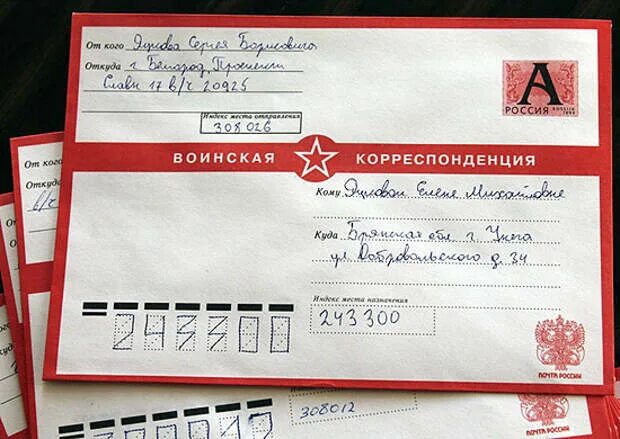 От кого Яцкова Сергея Борисовича
Откуда г. Белгород, Проспект
Славы 17 в/ч 20925
Индекс места отправления
308026
А
РОССИЯ ROSSIJA
ВОИНСКАЯ КОРРЕСПОНДЕНЦИЯ
Кому Яцковой Елене Михайловне
Куда Брянская обл г. Унеча
ул Добровольского д. 34
Индекс места назначения
243300
243300
ПОЧТА РОССИИ
От кого
Откуда
в/ч
308012